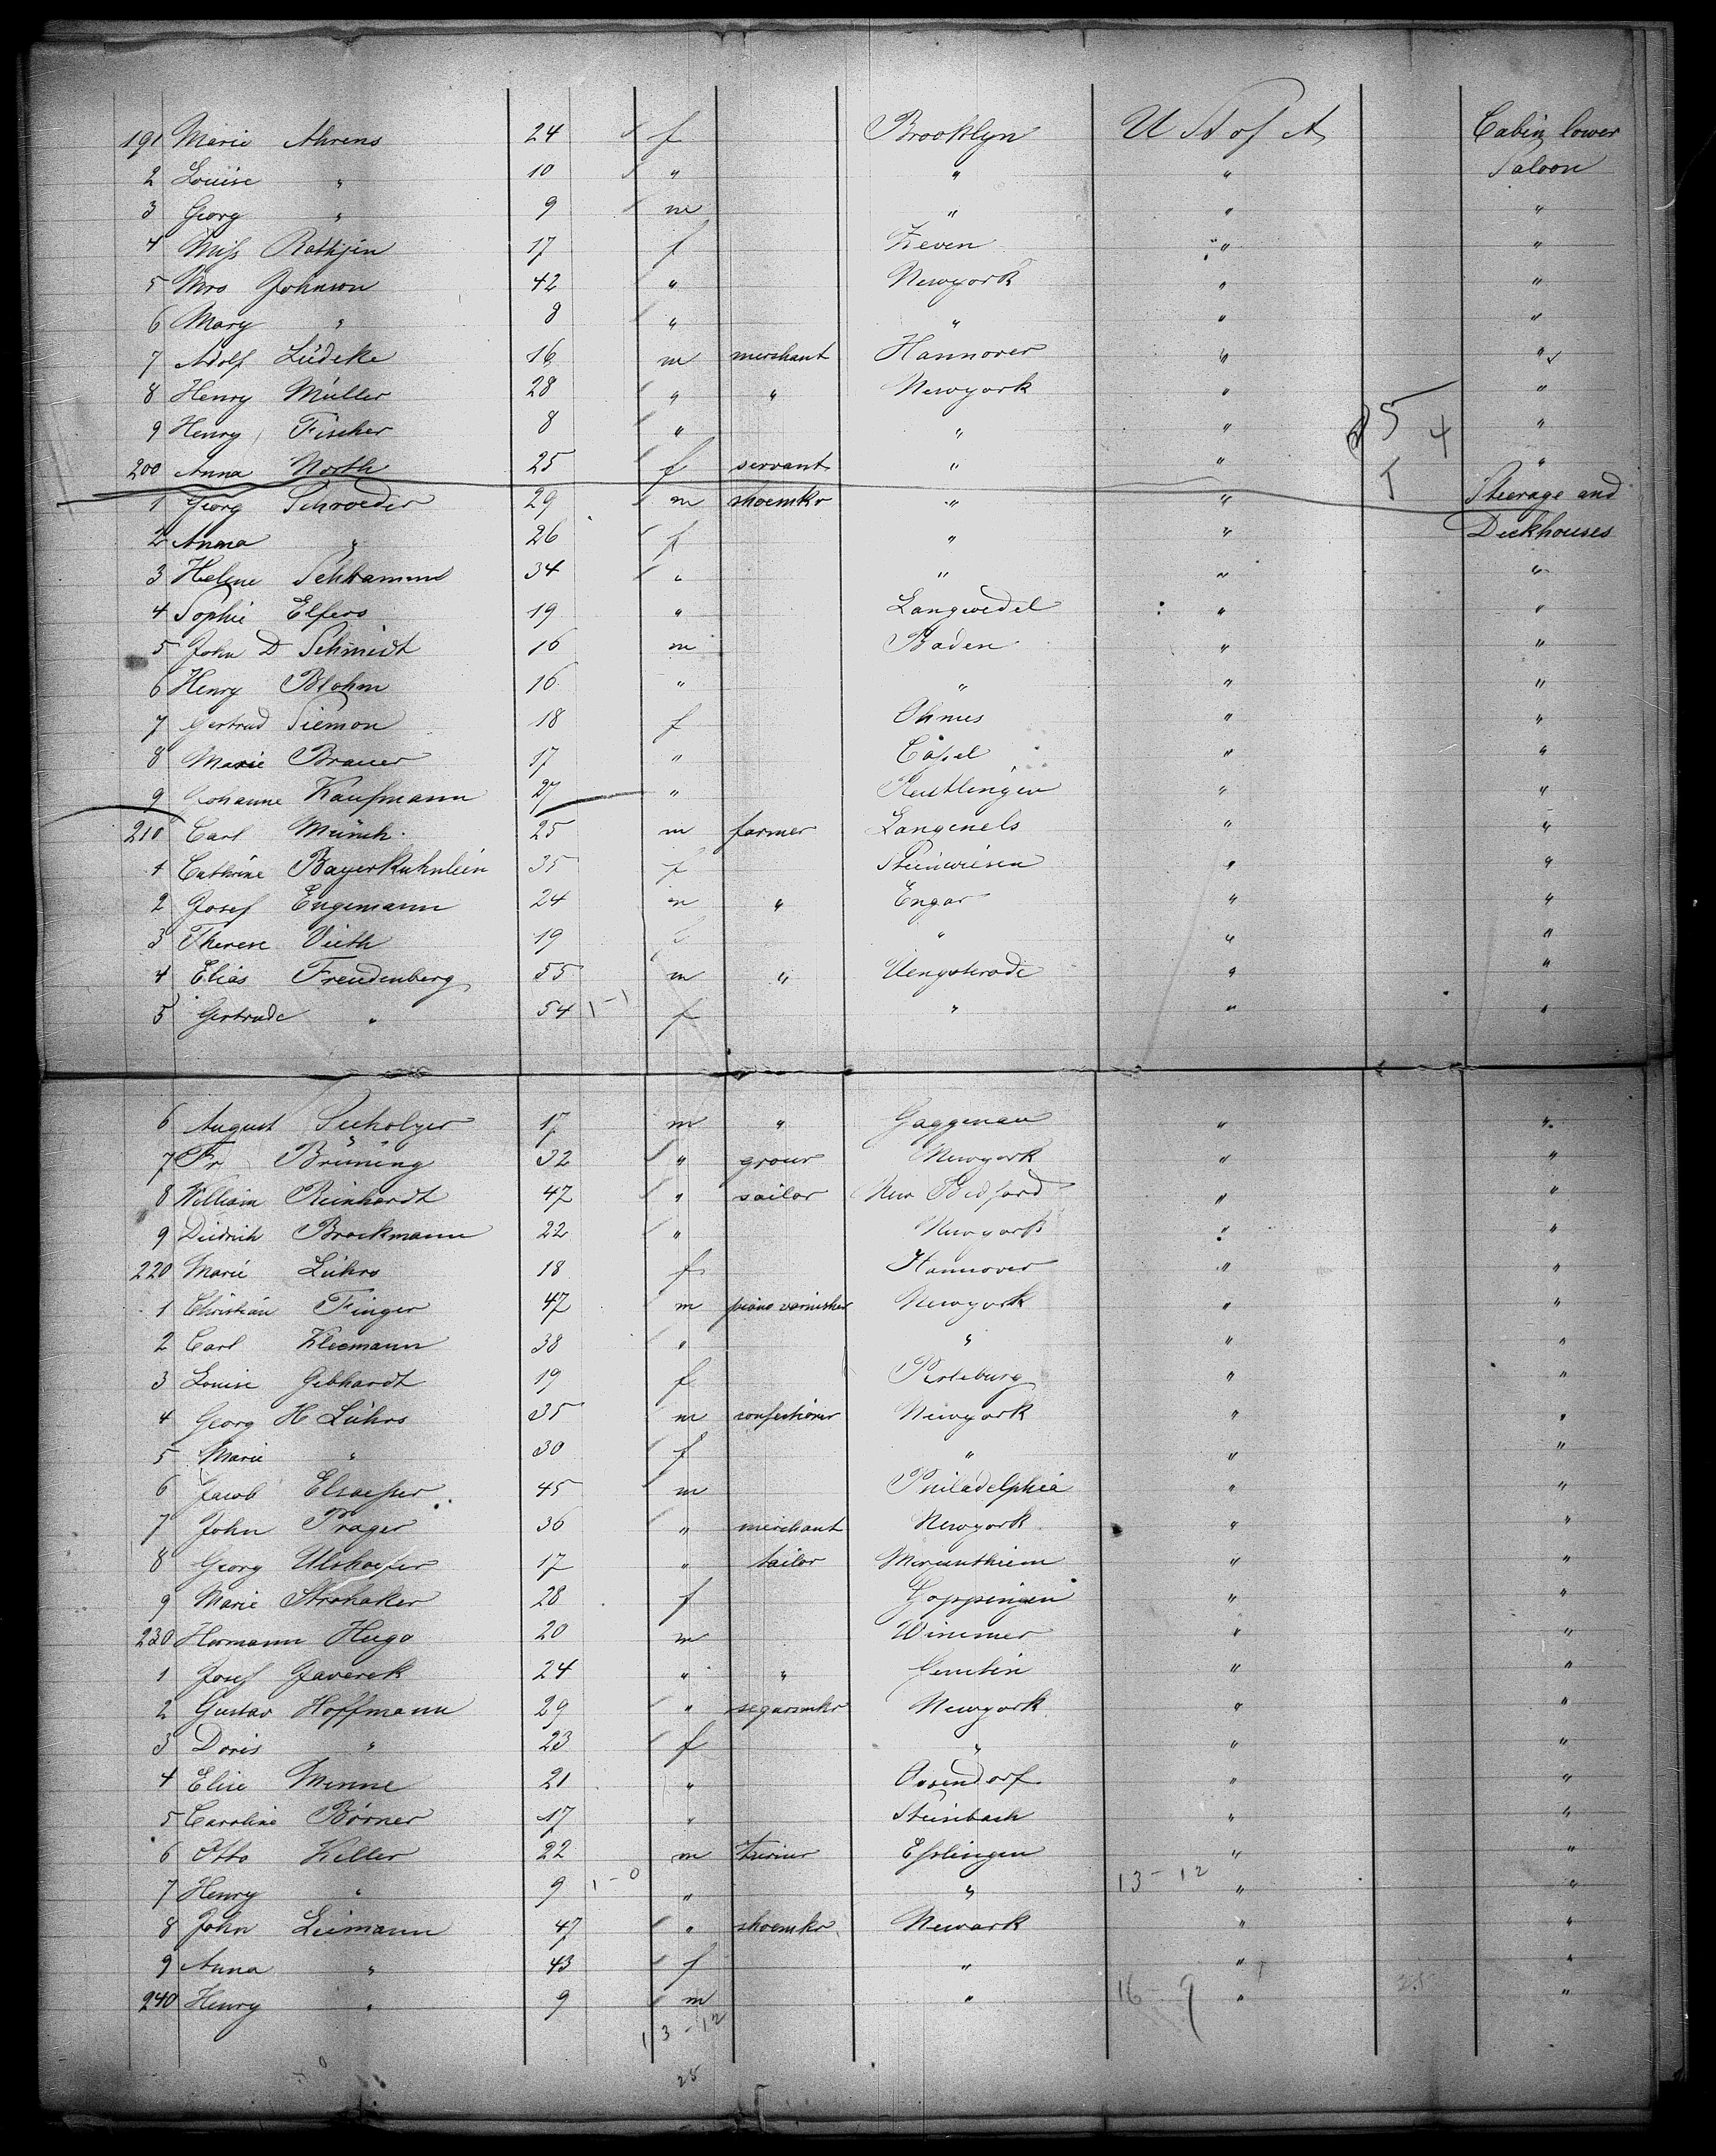 191 Marie Ahrens 24 f Brooklyn U St of A Cabin lower
2 Louise " 10 " " " Saloon
3 Georg " 9 m " " "
4 Miss Rathjen 17 f Zeven " "
5 Mrs Johnson 42 " Newyork " "
6 Mary " 8 " " " "
7 Adolf Lüdeke 16 m merchant Hannover " "
8 Henry Müller 28 " " Newyork " "
9 Henry Fischer 8 " " " "
200 Anna North 25 f servant " " "
1 Georg Schroeder 29 m shoemkr " " Steerage and
2 Anna " 26 f " " Deckhouses
3 Helene Schramm 34 " " " "
4 Sophie Elfers 19 " Langwedel " "
5 John D Schmidt 16 m Baden " "
6 Henry Blohm 16 " " " "
7 Gertrud Siemon 18 f Ohmes " "
8 Marie Brauer 17 " " "
9 Johanne Kaufmann 27 " Reutlingen " "
210 Carl Münch 25 m farmer Langenels " "
1 Cathrine Bayerkuhnlein 35 f Steinwiesen " "
2 Josef Engemann 24 m " Engar " "
3 Therese Vieth 19 " " "
4 Elias Freudenberg 55 m " " "
5 Gertrude " 54 1-1 f " " "
6 August Seeholzer 17 m " Gaggenau " "
7 Fr Brüning 32 " grocer Newyork " "
8 William Reinhardt 47 " sailor New Bedford " "
9 Diedrich Brockmann 22 " Newyork " "
220 Marie Lührs 18 f Hannover " "
1 Christian Finger 47 m piano varnisher Newyork " "
2 Carl Kleemann 38 " " " "
3 Louise Gebhardt 19 f Perleburg " "
4 Georg H Lührs 35 m confectioner Newyork " "
5 Marie " 30 f " " "
6 Jacob Elsaesser 45 m Philadelphia " "
7 John Prager 36 " merchant Newyork " "
8 Georg Ulshoefer 17 " tailor " "
9 Marie Strohaker 28 f Goppingen " "
230 Hermann Hugo 20 m Wimmer " "
1 Josef Gaverek 24 " " " "
2 Gustav Hoffmann 29 " segarmkr Newyork " "
3 Doris " 23 f " " "
4 Elise Menne 21 " Ossendorf " "
5 Caroline Börner 17 " Steinbach " "
6 Otto Keller 22 m turner Esslingen " "
7 Henry " 9 1-0 " " 13-12 " "
8 John Leimann 47 " shoemkr Newark " "
9 Anna " 43 f " " "
240 Henry " 9 m " 16-9 " 25 "
13-12
25